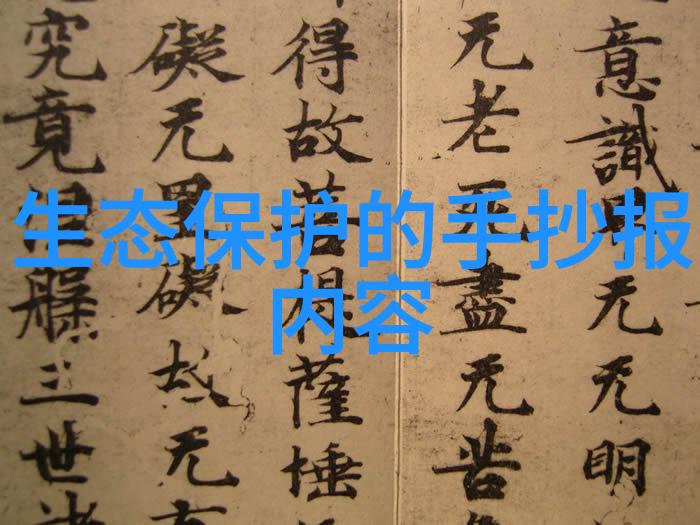 生态保护的手抄报
内容
意識界无无明
无老死盡无苦
得故菩提薩埵
礙无罣礙故无有
究竟涅槃三世諸